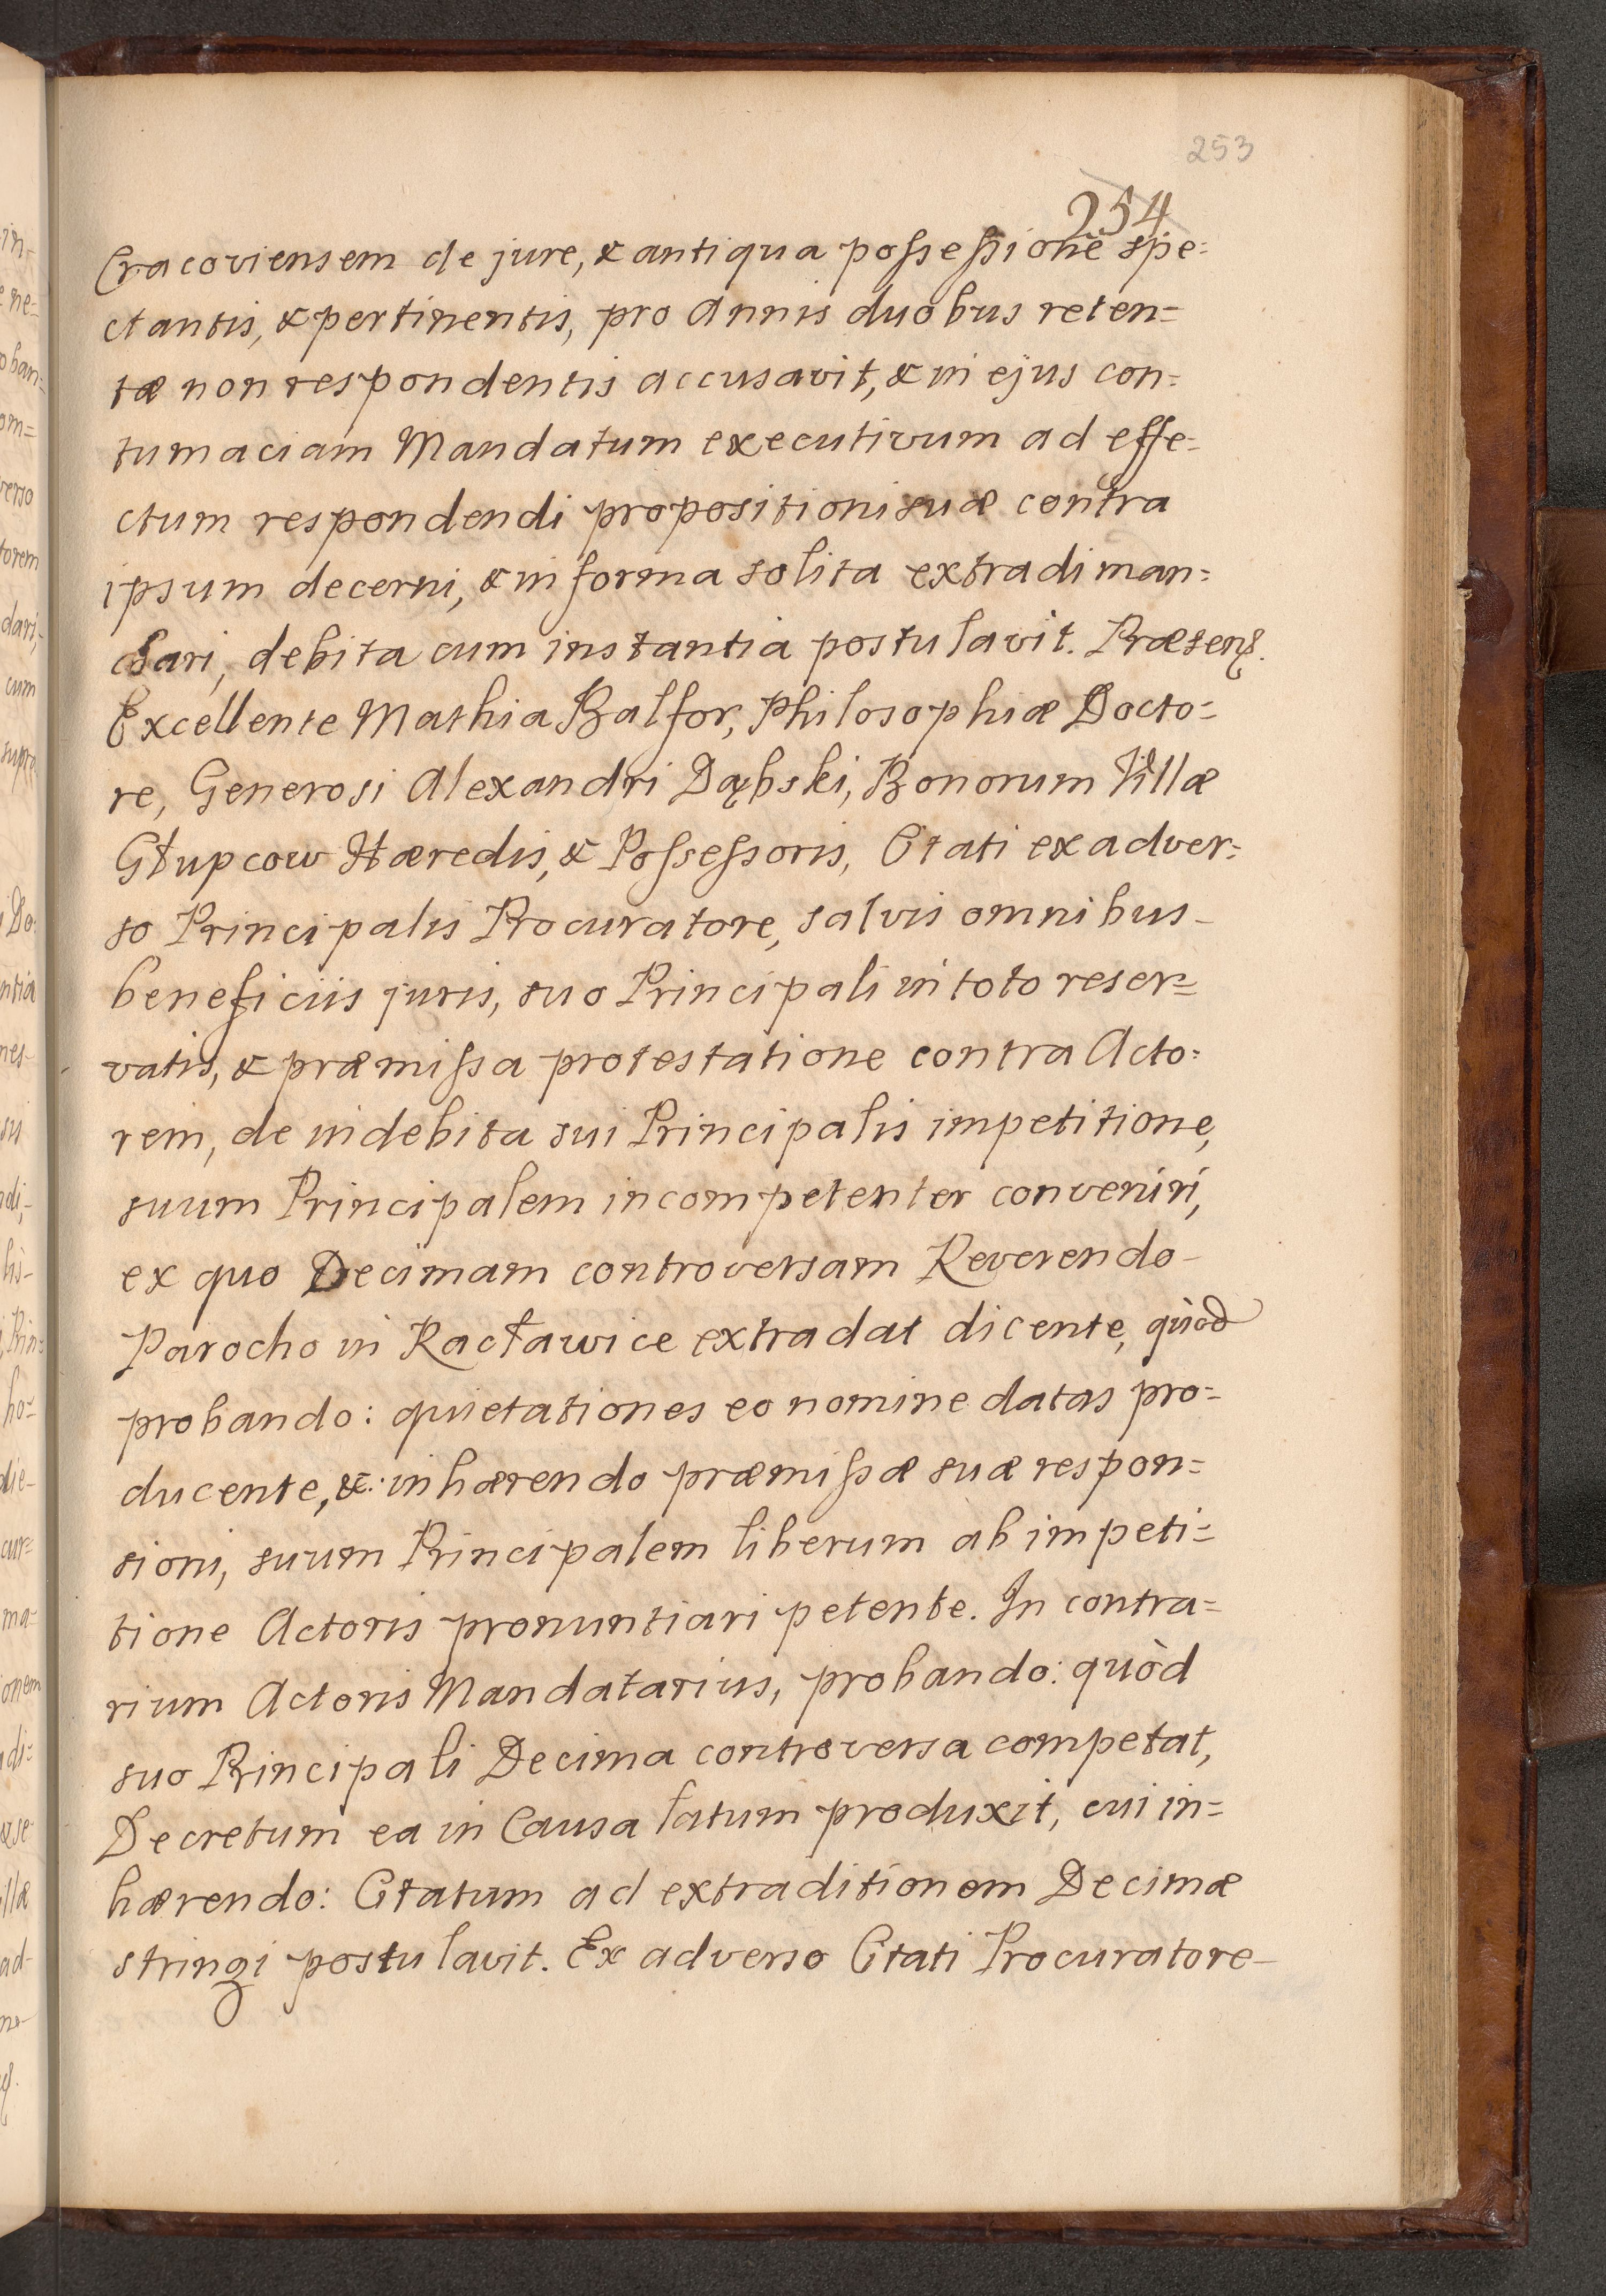 253
254
Cracoviensem de jure, & antiqua possessione spe=
ctantis, & pertinentis, pro Annis duobus reten=
tæ non respondentis accusavit, & in ejus con=
tumaciam Mandatum executivum ad effe=
ctum respondendi propositioni suæ contra
ipsum decerni, & in forma solita extradi man=
dari, debita cum instantia postulavit. Præsenę.
Excellente Mathia Balfor, Philosophiæ Docto=
re, Generosi Alexandri Dąbski, Bonorum Villæ
Głupcow Hæredis, & Possessoris, Citati ex adver=
so Principalis Procuratore, salvis omnibus-
beneficiis juris, suo Principali in toto reser=
vatis, & præmissa protestatione contra Acto=
rem, de indebita sui Principalis impetitione,
suum Principalem incompetenter conveniri,
ex quo Decimam controversam Reverendo-
Parocho in Racławice extradat dicente, quòd
probando: quietationes eo nomine datas pro=
ducente, &: inhærendo præmissæ suæ respon=
sioni, suum Principalem liberum ab impeti=
tione Actoris pronuntiari petente. In contra=
rium Actoris Mandatarius, probando: quòd
suo Principali Decima controversa competat,
Decretum ea in Causa latum produxit, cui in=
hærendo: Citatum ad extraditionem Decimæ
stringi postulavit. Ex adverso Citati Procuratore-